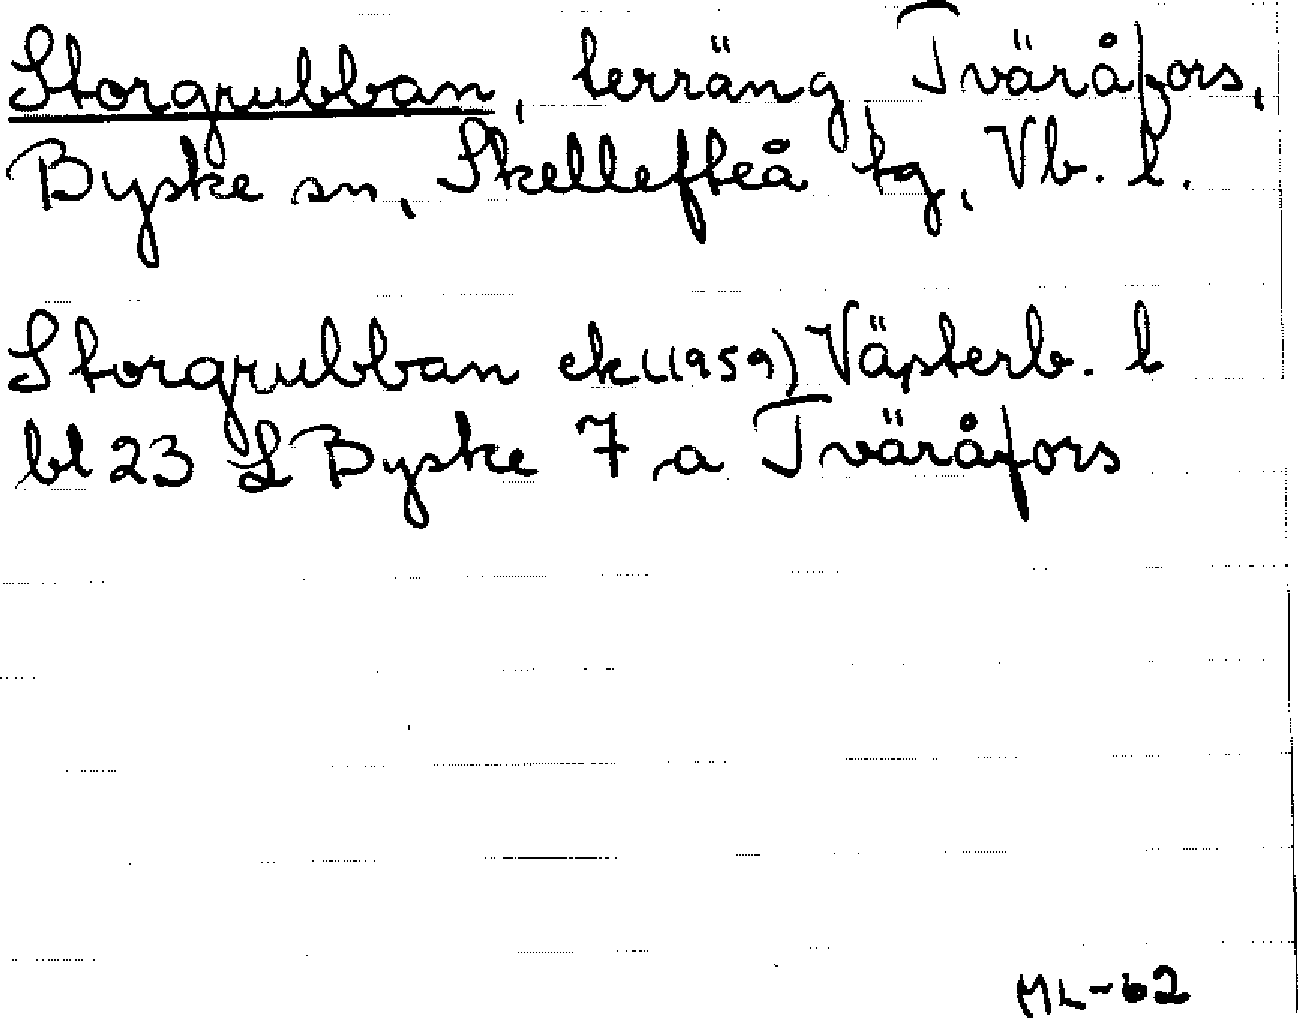 Storgrubban, terräng Tväråfors,
Byske sn, Skellefteå tg, Vb. l.
Storgrubban ek (1959) Västerb. l
bl 23 L Byske 7 a Tväråfors
ML-62